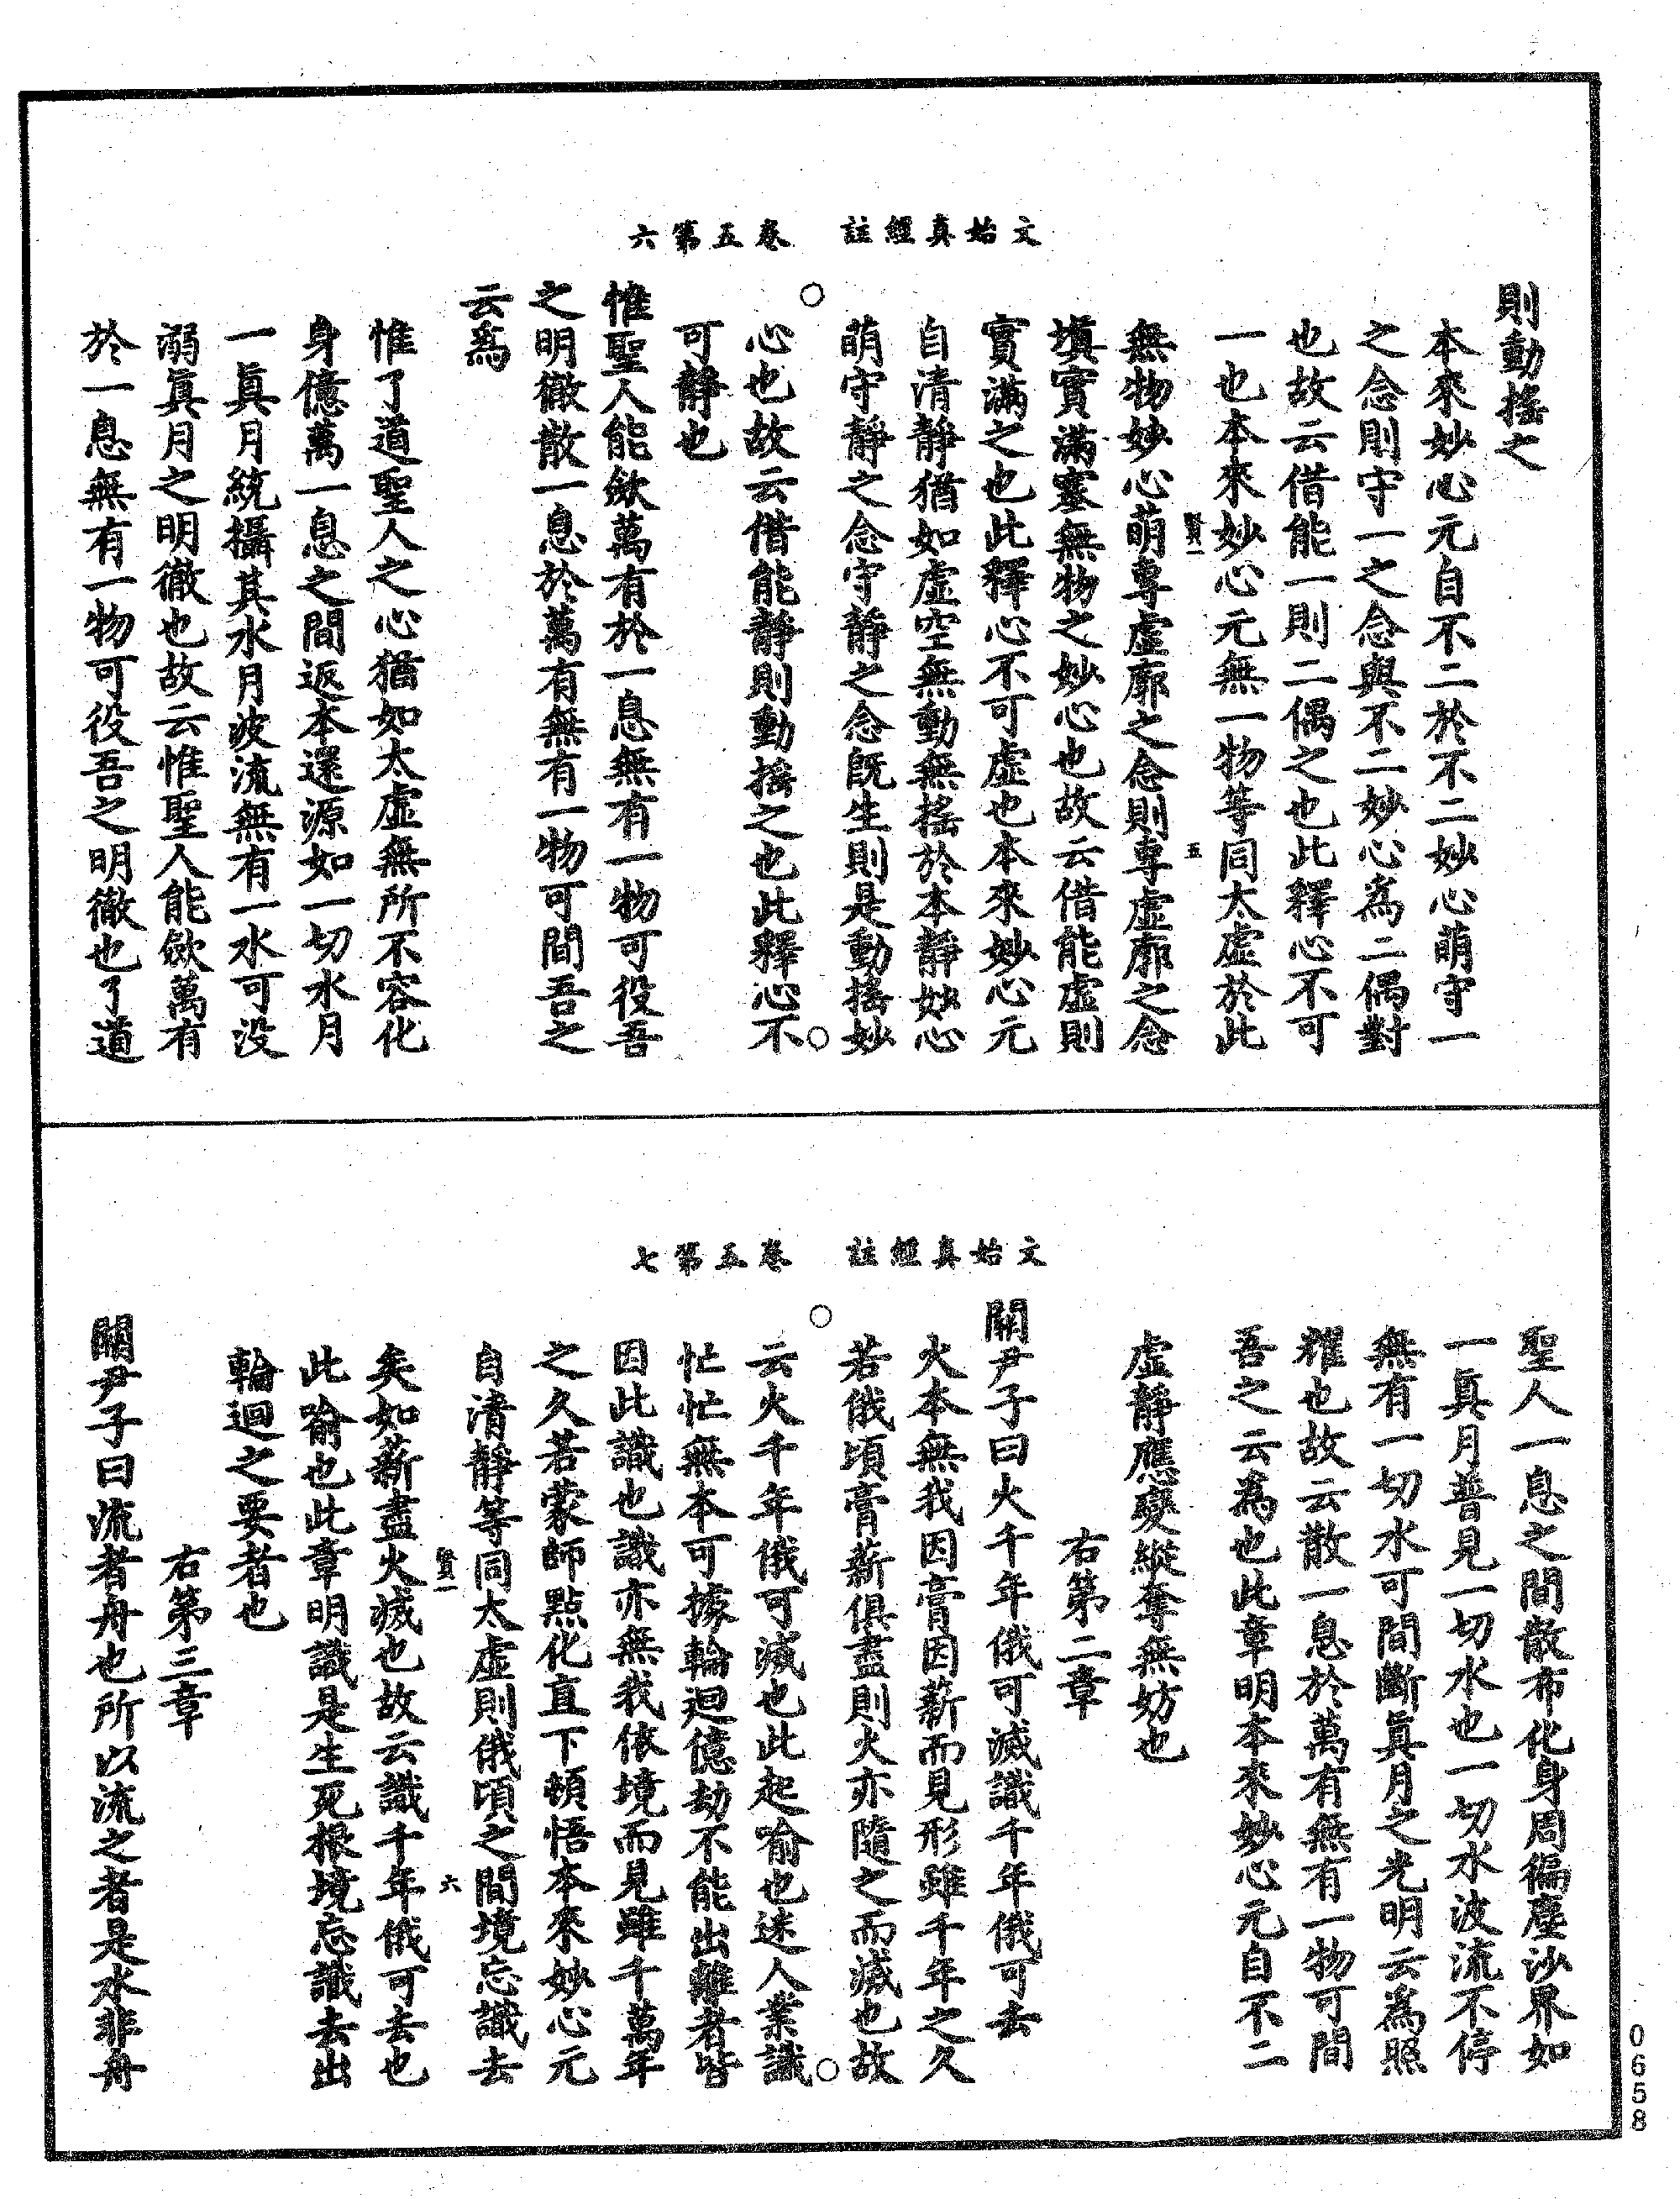 文始真經註　卷五第六
則動搖之
本來妙心元自不二於不二妙心萌守一
之念則守一之念與不二妙心為二偶對
也故云借能一則二偶之也此釋心不可
一也本來妙心元無一物等同太虛於此
賢一　五
無物妙心萌專虛廓之念則專虛廓之念
填實滿塞無物之妙心也故云借能虛則
實滿之也此釋心不可虛也本來妙心元
自清靜猶如虛空無動無搖於本靜妙心
萌守靜之念守靜之念既生則是動搖妙
心也故云借能靜則動搖之也此釋心不
可靜也
惟聖人能斂萬有於一息無有一物可役吾
之明徹散一息於萬有無有一物可間吾之
云為
惟了道聖人之心猶如太虛無所不容化
身億萬一息之間返本還源如一切水月
一真月統攝其水月波流無有一水可没
溺真月之明徹也故云惟聖人能斂萬有
於一息無有一物可役吾之明徹也了道
文始真經註　卷五第七
聖人一息之間散布化身周徧塵沙界如
一真月普見一切水也一切水波流不停
無有一切水可間斷真月之光明云為照
耀也故云散一息於萬有無有一物可間
吾之云為也此章明本來妙心元自不二
虛靜應變縱奪無妨也
右第二章
關尹子曰火千年俄可滅識千年俄可去
火本無我因膏因薪而見形雖千年之久
若俄頃膏薪俱盡則火亦隨之而滅也故
云火千年俄可滅也此起喻也迷人業識
忙忙無本可據輪迴億劫不能出離者皆
因此識也識亦無我依境而見雖千萬年
之久若蒙師點化直下頓悟本來妙心元
自清靜等同太虛則俄頃之間境忘識去
賢一　六
矣如薪盡火滅也故云識千年俄可去也
此喻也此章明識是生死根境忘識去出
輪迴之要者也
右第三章
關尹子曰流者舟也所以流之者是水非舟
0658